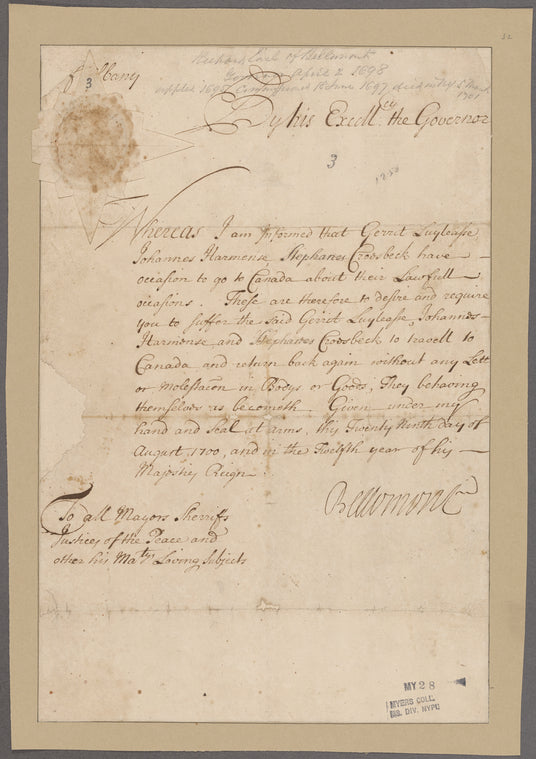 32
Albany
3
Richard Earl of Bellomont
April 2 1698
1697 June 1697 died
1701
By his Excell.cy the Governor
3
1250
Whereas I am Informed that Gerrit Luyleasse
Johannes Harmense, Stephanes Croosbeck have —
occasion to go to Canada about their Lawfull —
occasions. These are therefore to desire and require
you to suffer the said Gerrit Luyleasse, Johannes —
Harmonse and Stephanes Croosbeck to travell to
Canada and return back again without any Lett
or molestacon in Bodys or Goods, They behaving
themselves as becometh. Given under my
hand and Seal at arms, this Twenty Ninth day of
August, 1700, and in the Twelfth year of his —
Majesties Reign.
Bellomont
To all Mayors Sherriffs
Justices of the Peace and
other his Ma.tys Loving Subjects
MY 28
MYERS COLL.
MS. DIV. NYPL